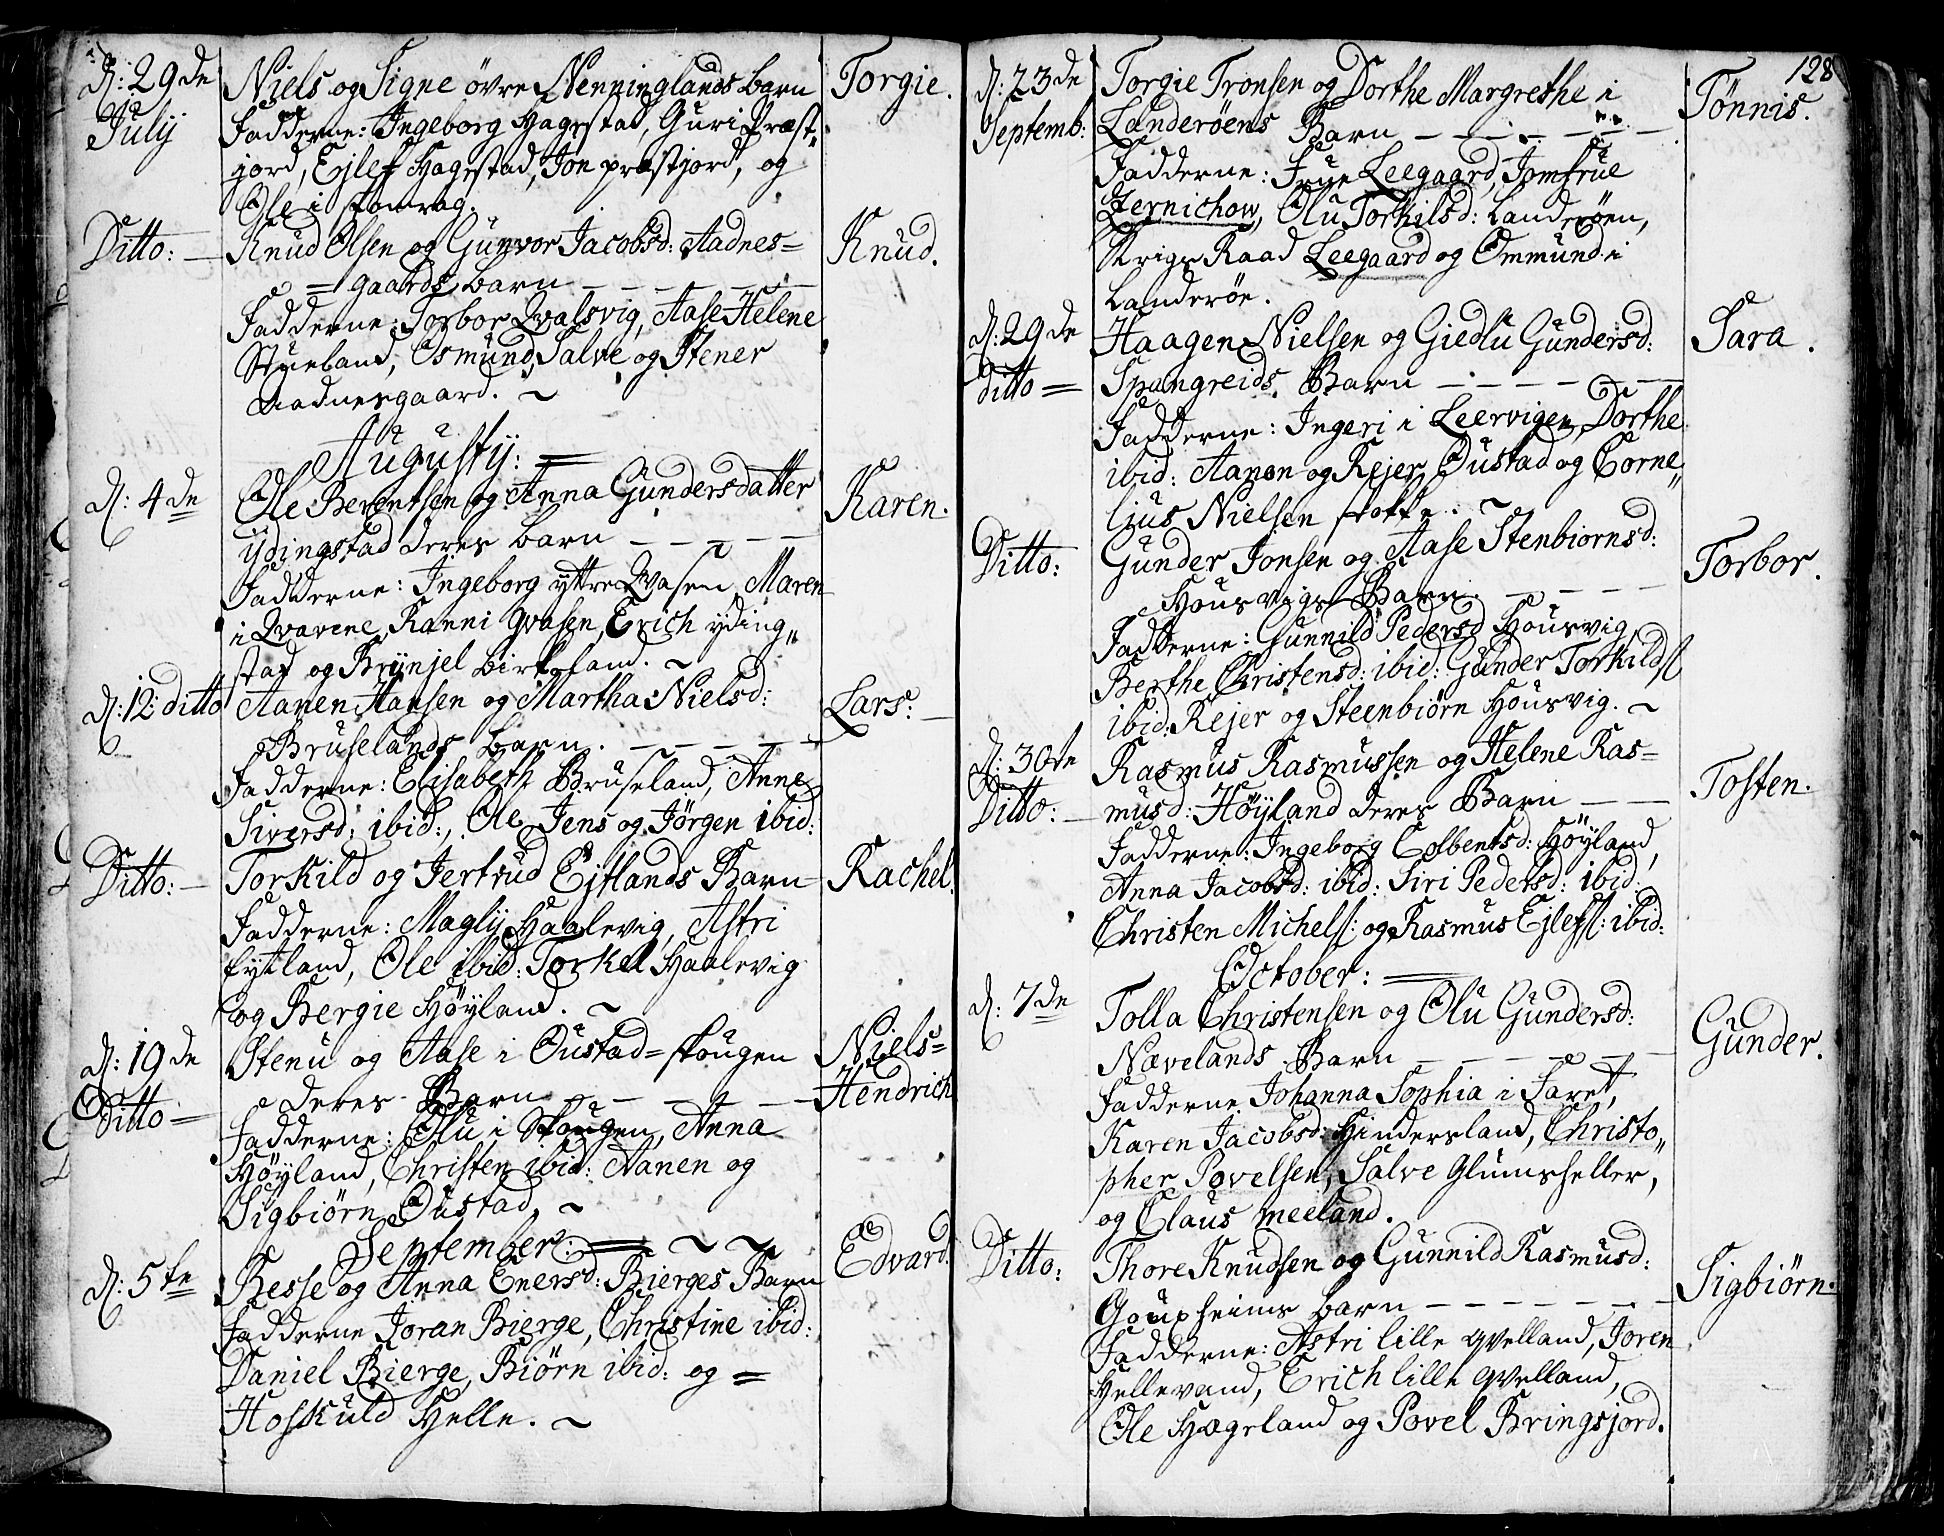 d: 29de Niels og Signe övre Nenninglands barn Torgie.
July Fadderne: Ingeborg Hagestad, Guri Præst-
jord, Ejlef Hagestad, Jon præstjord, og
Ole i
Ditto: Knud Olsen og Gunvor Jacobsd: Aadnes=
=gaards barn — — — — — Knud.
Fadderne: Torbor Qvalsvig, Aase Helene
Stueland, Osmund, Salve og Stener
Aadnesgaard. ~
Augusty: =
d: 4de Ole Berentsen og Anna Gundersdatter Karen.
ydingstad deres barn — — — —
Fadderne: Ingeborg yttre Qvasen, Maren
i Qvavene, Ranni qvasen, Erich yding„
stad og Brynjel birkeland. ~
d: 12: ditto Aanen Hansen og Martha Nielsd: Lars: —
Bruselands barn. — — — —
Fadderne: Elisabeth Bruseland, Anne
Siversd: ibid:, Ole, Jens og Jörgen ibid:
Ditto: — Torkild og Jertrud Ejtlands Barn Rachel.
Fadderne: Magly Haalevig, Astri
Eytland, Ole ibid: Torkel Haalevig
og Bergie Höyland. ~
d: 19de Stenu og Aase i Öustad=skougen Niels=
Ditto — deres Barn — — — — Hendrich
Fadderne: Olu i Skougen, Anna
Höyland, Christen ibid: Aanen og
Sigbiörn Öustad, ~
September: = ~ ~
d: 5te Besse og Anna Enersd: Bierges Barn Edvard.
Fadderne Joran Bierge, Christine ibid:
Daniel Bierge, Biörn ibid: og =
Hoskuld Helle. ~
128
d: 23de Torgie Tronsen og Dorthe Margrethe i Tönnis.
Septemb: Landeröens Barn — — — — —
Fadderne: Frue Leegaard, Jomfrue
Zernichow, Olu Torkilsd: Landeröen,
Krigs Raad Leegaard og Ommund i
Landeröe.
d: 29de Haagen Nielsen og Giedlu Gundersd: Sara.
Ditto = Spangreids Barn — — — — —
Fadderne: Ingeri i Leervigen, Dorthe
ibid: Aanon og Rejer Öustad og Corne„
lius Nielsen stokke. ~
Ditto: Gunder Jonsen og Aase Stenbiörnsd: Torbor.
Housvigs Barn. — — — —
Fadderne: Gunnild Pedersd Housvig,
Berthe Christensd: ibid: Gunder Torkilds
ibid: Rejer og Steenbiörn Housvig. ~
d: 30te Rasmus Rasmussen og Helene Ras= Tosten.
Ditto: — musd: Höyland deres Barn — —
Fadderne: Ingeborg Colbentsd: Höyland,
Anna Jacobsd: ibid: Siri Pedersd: ibid:
Christen Michels: og Rasmus Ejlefs: ibid:
October: =
d: 7de Tolla Christensen og Olu Gundersd: Gunder.
Nævelands Barn — — — — —
Fadderne Johanna Sophia i Faret,
Karen Jacobsd: Hindersland, Christo„
pher Povelsen, Salve Glumsheller,
og Claus meeland.
Ditto: Thore Knudsen og Gunnild Rasmusd: Sigbiörn.
Goupheims barn — — — — — —
Fadderne: Astri lille Qvelland, Joren
Hellevand, Erich lille Qvelland,
Ole Hægeland og Povel Bringsjord.